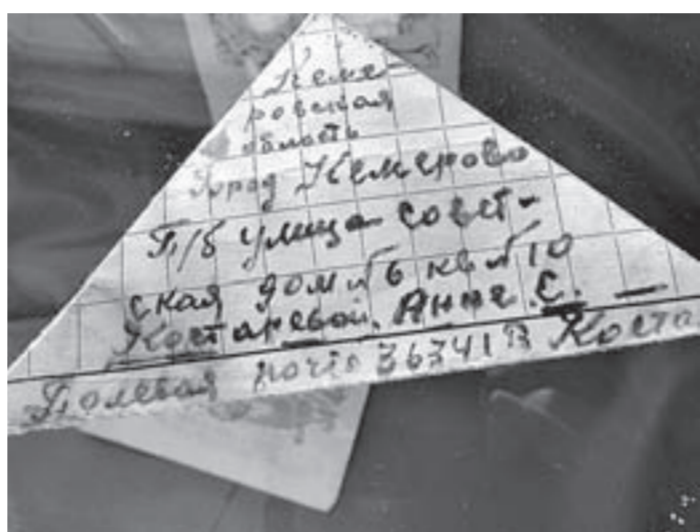 Кеме-
ровская
область
Город Кемерово
П/б улица совет-
ская дом № 6 кв № 10
Костаревой. Анне. С. —
Полевая почта 36341 В Коста